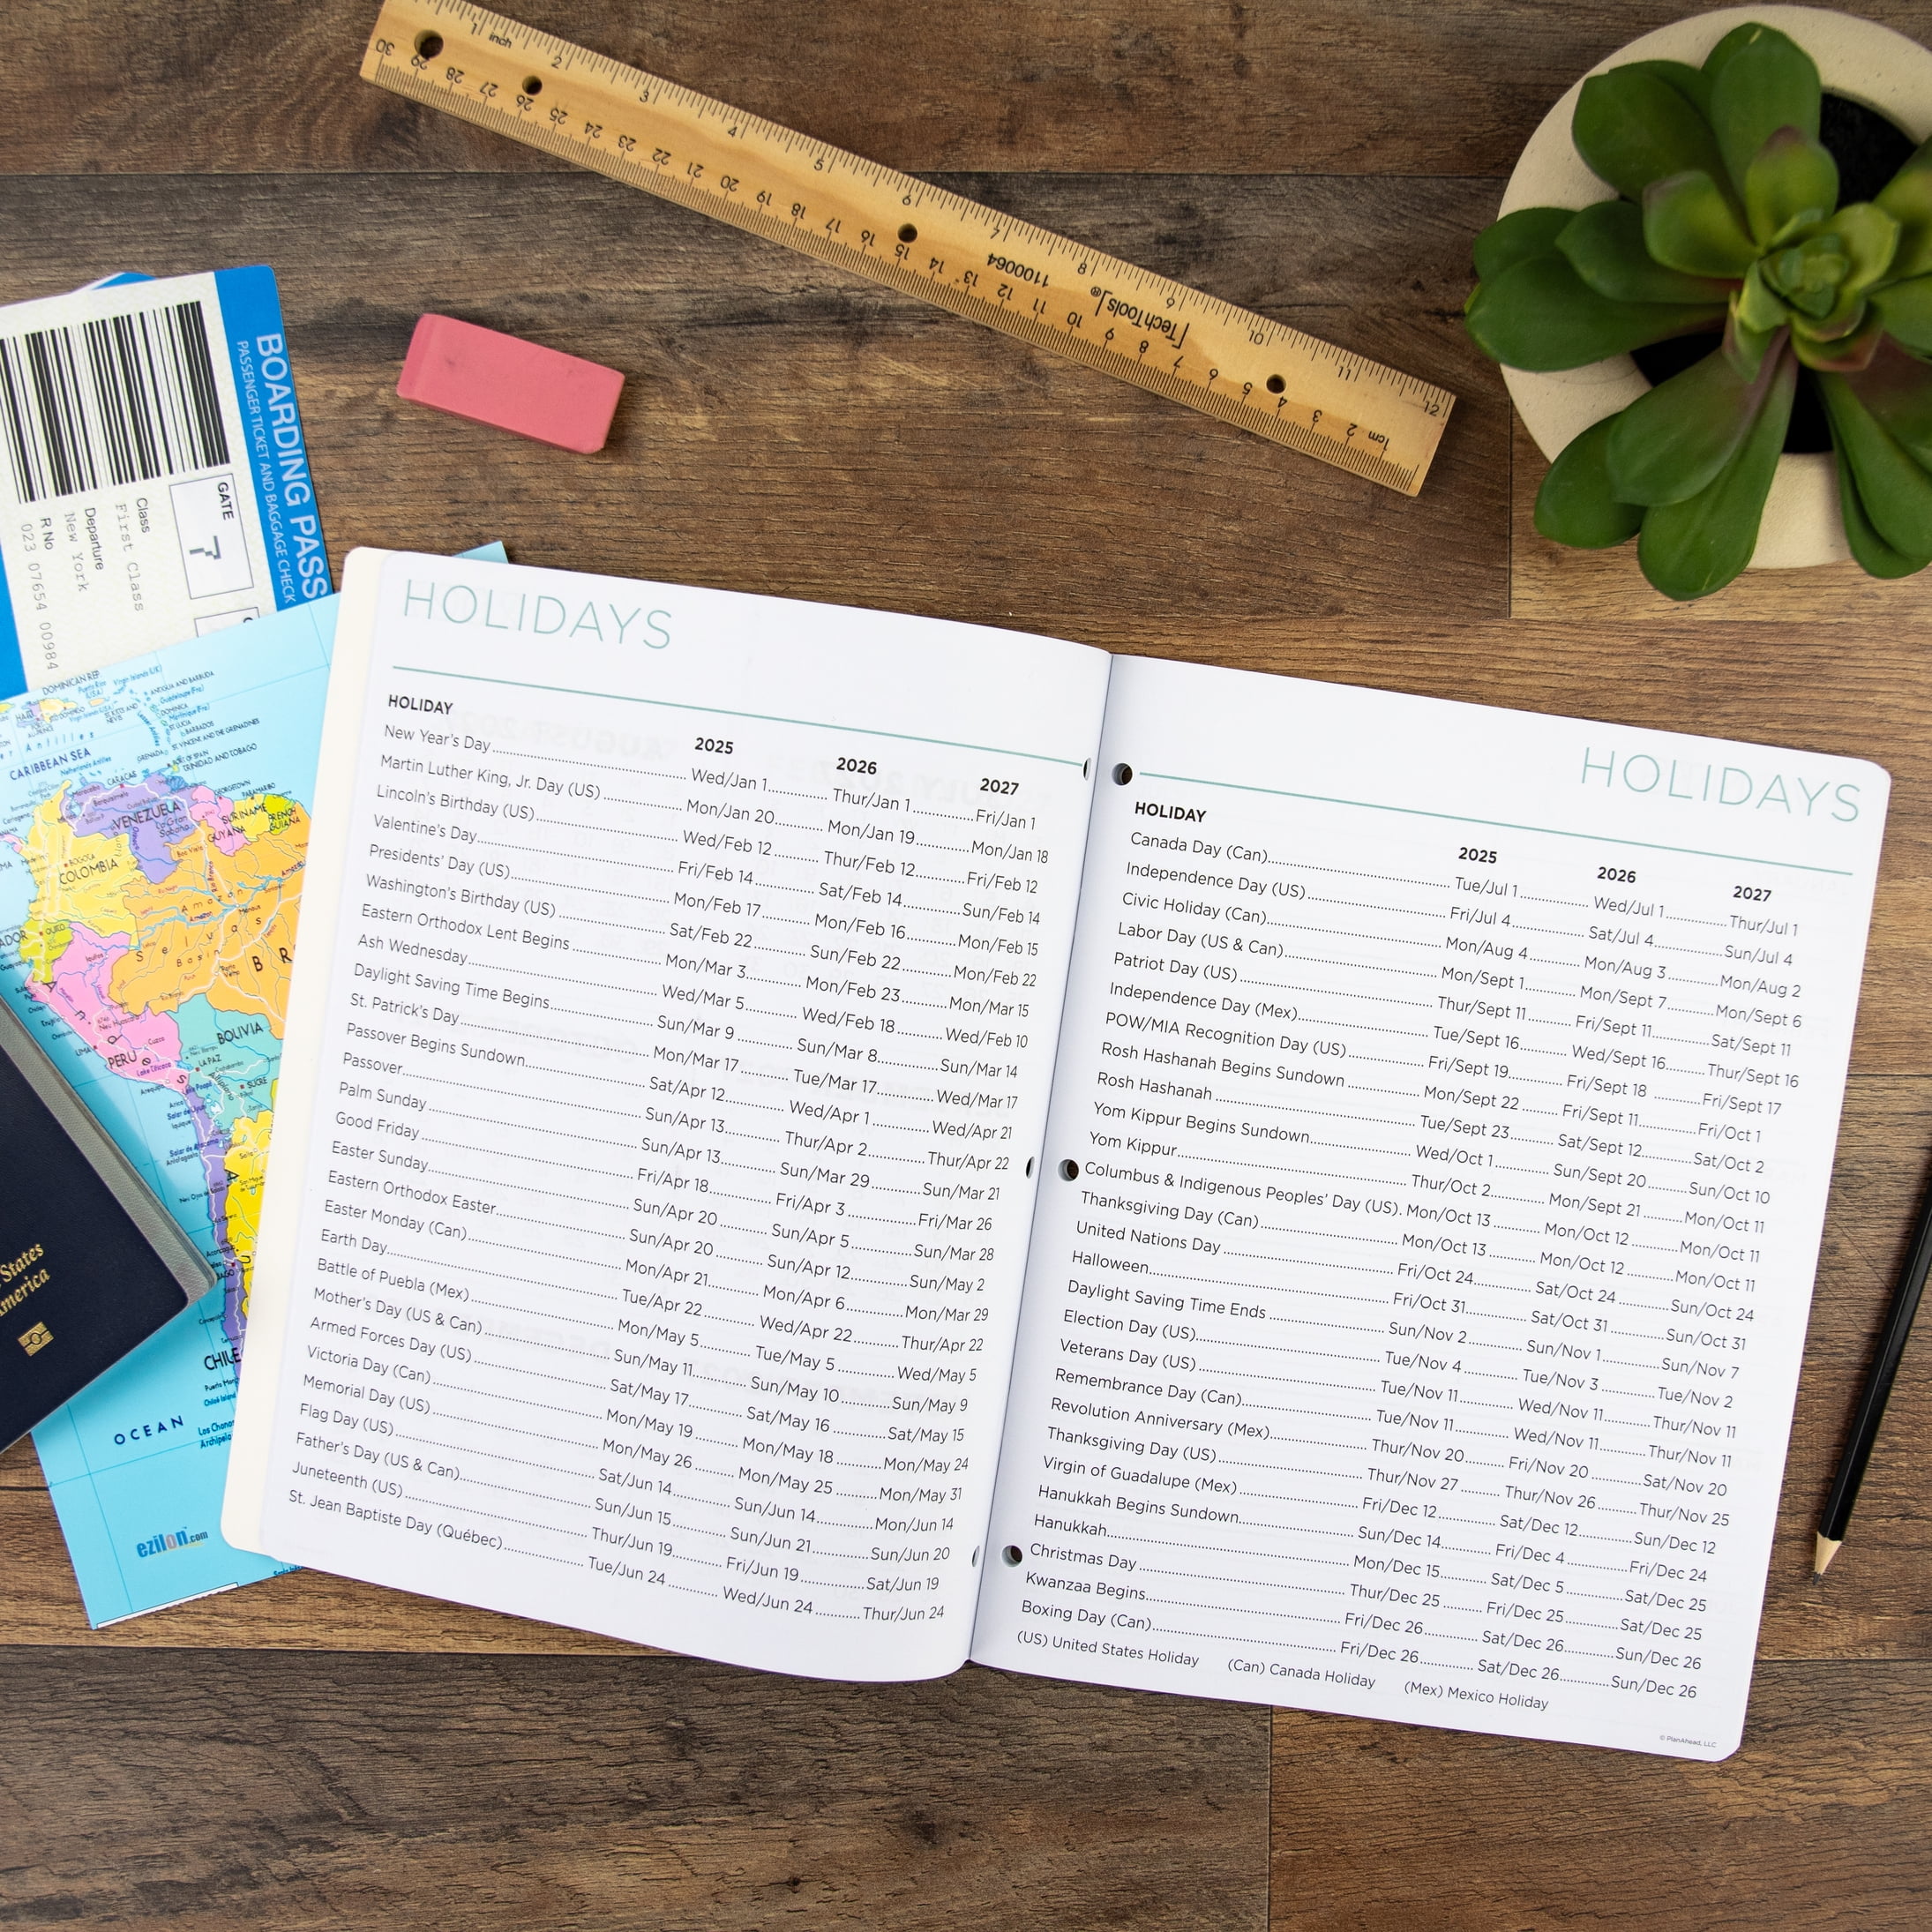 1 inch 2 3 4 5 6 7 8 9 10 11 12
30 29 28 27 26 25 24 23 22 21 20 19 18 17 16 15 14 13 12 11 10 9 8 7 6 5 4 3 2 1cm
1100064
TechTools®
BOARDING PASS
PASSENGER TICKET AND BAGGAGE CHECK
GATE
7
Class
First Class
Departure
New York
R No
023 07654 00984
DOMINICAN REP.
ANTIGUA AND BARBUDA
DOMINICA
BARBADOS
ST. VINCENT AND THE GRENADINES
TRINIDAD AND TOBAGO
CARIBBEAN SEA
CARACAS
VENEZUELA
GEORGETOWN
PARAMARIBO
SURINAME
GUYANA
FRENCH GUIANA
BOGOTA
COLOMBIA
QUITO
Amazon
Selvas
Basin
BR
LIMA
PERU
BOLIVIA
LA PAZ
SUCRE
CHILE
OCEAN
ezilon.com
States
America
HOLIDAYS
HOLIDAY 2025 2026 2027
New Year's Day Wed/Jan 1 Thur/Jan 1 Fri/Jan 1
Martin Luther King, Jr. Day (US) Mon/Jan 20 Mon/Jan 19 Mon/Jan 18
Lincoln's Birthday (US) Wed/Feb 12 Thur/Feb 12 Fri/Feb 12
Valentine's Day Fri/Feb 14 Sat/Feb 14 Sun/Feb 14
Presidents' Day (US) Mon/Feb 17 Mon/Feb 16 Mon/Feb 15
Washington's Birthday (US) Sat/Feb 22 Sun/Feb 22 Mon/Feb 22
Eastern Orthodox Lent Begins Mon/Mar 3 Mon/Feb 23 Mon/Mar 15
Ash Wednesday Wed/Mar 5 Wed/Feb 18 Wed/Feb 10
Daylight Saving Time Begins Sun/Mar 9 Sun/Mar 8 Sun/Mar 14
St. Patrick's Day Mon/Mar 17 Tue/Mar 17 Wed/Mar 17
Passover Begins Sundown Sat/Apr 12 Wed/Apr 1 Wed/Apr 21
Passover Sun/Apr 13 Thur/Apr 2 Thur/Apr 22
Palm Sunday Sun/Apr 13 Sun/Mar 29 Sun/Mar 21
Good Friday Fri/Apr 18 Fri/Apr 3 Fri/Mar 26
Easter Sunday Sun/Apr 20 Sun/Apr 5 Sun/Mar 28
Eastern Orthodox Easter Sun/Apr 20 Sun/Apr 12 Sun/May 2
Easter Monday (Can) Mon/Apr 21 Mon/Apr 6 Mon/Mar 29
Earth Day Tue/Apr 22 Wed/Apr 22 Thur/Apr 22
Battle of Puebla (Mex) Mon/May 5 Tue/May 5 Wed/May 5
Mother's Day (US & Can) Sun/May 11 Sun/May 10 Sun/May 9
Armed Forces Day (US) Sat/May 17 Sat/May 16 Sat/May 15
Victoria Day (Can) Mon/May 19 Mon/May 18 Mon/May 24
Memorial Day (US) Mon/May 26 Mon/May 25 Mon/May 31
Flag Day (US) Sat/Jun 14 Sun/Jun 14 Mon/Jun 14
Father's Day (US & Can) Sun/Jun 15 Sun/Jun 21 Sun/Jun 20
Juneteenth (US) Thur/Jun 19 Fri/Jun 19 Sat/Jun 19
St. Jean Baptiste Day (Québec) Tue/Jun 24 Wed/Jun 24 Thur/Jun 24
HOLIDAYS
HOLIDAY 2025 2026 2027
Canada Day (Can) Tue/Jul 1 Wed/Jul 1 Thur/Jul 1
Independence Day (US) Fri/Jul 4 Sat/Jul 4 Sun/Jul 4
Civic Holiday (Can) Mon/Aug 4 Mon/Aug 3 Mon/Aug 2
Labor Day (US & Can) Mon/Sept 1 Mon/Sept 7 Mon/Sept 6
Patriot Day (US) Thur/Sept 11 Fri/Sept 11 Sat/Sept 11
Independence Day (Mex) Tue/Sept 16 Wed/Sept 16 Thur/Sept 16
POW/MIA Recognition Day (US) Fri/Sept 19 Fri/Sept 18 Fri/Sept 17
Rosh Hashanah Begins Sundown Mon/Sept 22 Fri/Sept 11 Fri/Oct 1
Rosh Hashanah Tue/Sept 23 Sat/Sept 12 Sat/Oct 2
Yom Kippur Begins Sundown Wed/Oct 1 Sun/Sept 20 Sun/Oct 10
Yom Kippur Thur/Oct 2 Mon/Sept 21 Mon/Oct 11
Columbus & Indigenous Peoples' Day (US) Mon/Oct 13 Mon/Oct 12 Mon/Oct 11
Thanksgiving Day (Can) Mon/Oct 13 Mon/Oct 12 Mon/Oct 11
United Nations Day Fri/Oct 24 Sat/Oct 24 Sun/Oct 24
Halloween Fri/Oct 31 Sat/Oct 31 Sun/Oct 31
Daylight Saving Time Ends Sun/Nov 2 Sun/Nov 1 Sun/Nov 7
Election Day (US) Tue/Nov 4 Tue/Nov 3 Tue/Nov 2
Veterans Day (US) Tue/Nov 11 Wed/Nov 11 Thur/Nov 11
Remembrance Day (Can) Tue/Nov 11 Wed/Nov 11 Thur/Nov 11
Revolution Anniversary (Mex) Thur/Nov 20 Fri/Nov 20 Sat/Nov 20
Thanksgiving Day (US) Thur/Nov 27 Thur/Nov 26 Thur/Nov 25
Virgin of Guadalupe (Mex) Fri/Dec 12 Sat/Dec 12 Sun/Dec 12
Hanukkah Begins Sundown Sun/Dec 14 Fri/Dec 4 Fri/Dec 24
Hanukkah Mon/Dec 15 Sat/Dec 5 Sat/Dec 25
Christmas Day Thur/Dec 25 Fri/Dec 25 Sat/Dec 25
Kwanzaa Begins Fri/Dec 26 Sat/Dec 26 Sun/Dec 26
Boxing Day (Can) Fri/Dec 26 Sat/Dec 26 Sun/Dec 26
(US) United States Holiday (Can) Canada Holiday (Mex) Mexico Holiday
© PlanAhead, LLC